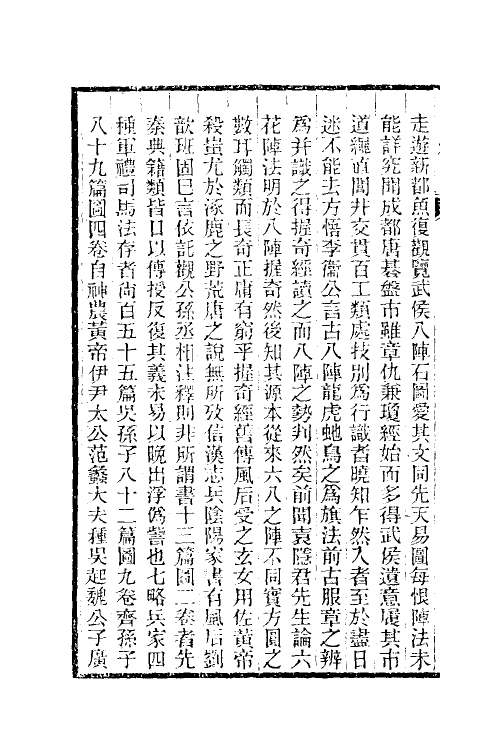 走遊新都魚復觀覽武侯八陣石圖愛其文同先天易圖每恨陣法未
能詳究聞成都唐碁盤市雖章仇兼瓊經始而多得武侯遺意履其市
道繩直閭井交貫百工類處技別為行識者曉知乍然入者至於盡日
迷不能去方悟李衛公言古八陣龍虎虵鳥之為旗法前古服章之辨
為并識之得握奇經讀之而八陣之勢判然矣前聞袁隱君先生論六
花陣法明於八陣握奇然後知其源本從來六八之陣不同實方圓之
數耳觸類而長奇正庸有窮乎握奇經舊傳風后受之玄女用佐黃帝
殺蚩尤於涿鹿之野荒唐之說無所攷信漢志兵陰陽家書有風后劉
歆班固巳言依託觀公孫丞相注釋則非所謂書十三篇圖二卷者先
秦典籍類皆口以傳授反復其義未易以晚出浮偽訾也七略兵家四
種軍禮司馬法存者尚百五十五篇吳孫子八十二篇圖九卷齊孫子
八十九篇圖四卷自神農黃帝伊尹太公范蠡大夫種吳起魏公子廣